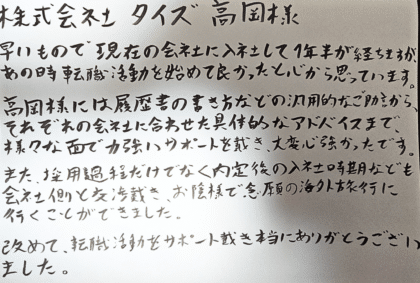 株式会社 タイズ 高岡様
早いもので現在の会社に入社して1年半が経ちますが、
あの時転職活動を始めて良かったと心から思っています。
高岡様には履歴書の書き方などの汎用的なご助言から、
それぞれの会社に合わせた具体的なアドバイスまで
様々な面で力強いサポートを戴き、大変心強かったです。
また、採用過程だけでなく内定後の入社時期なども
会社側と交渉戴き、お陰様で念願の海外旅行に
行くことができました。
改めて、転職活動をサポート戴き本当にありがとうござい
ました。